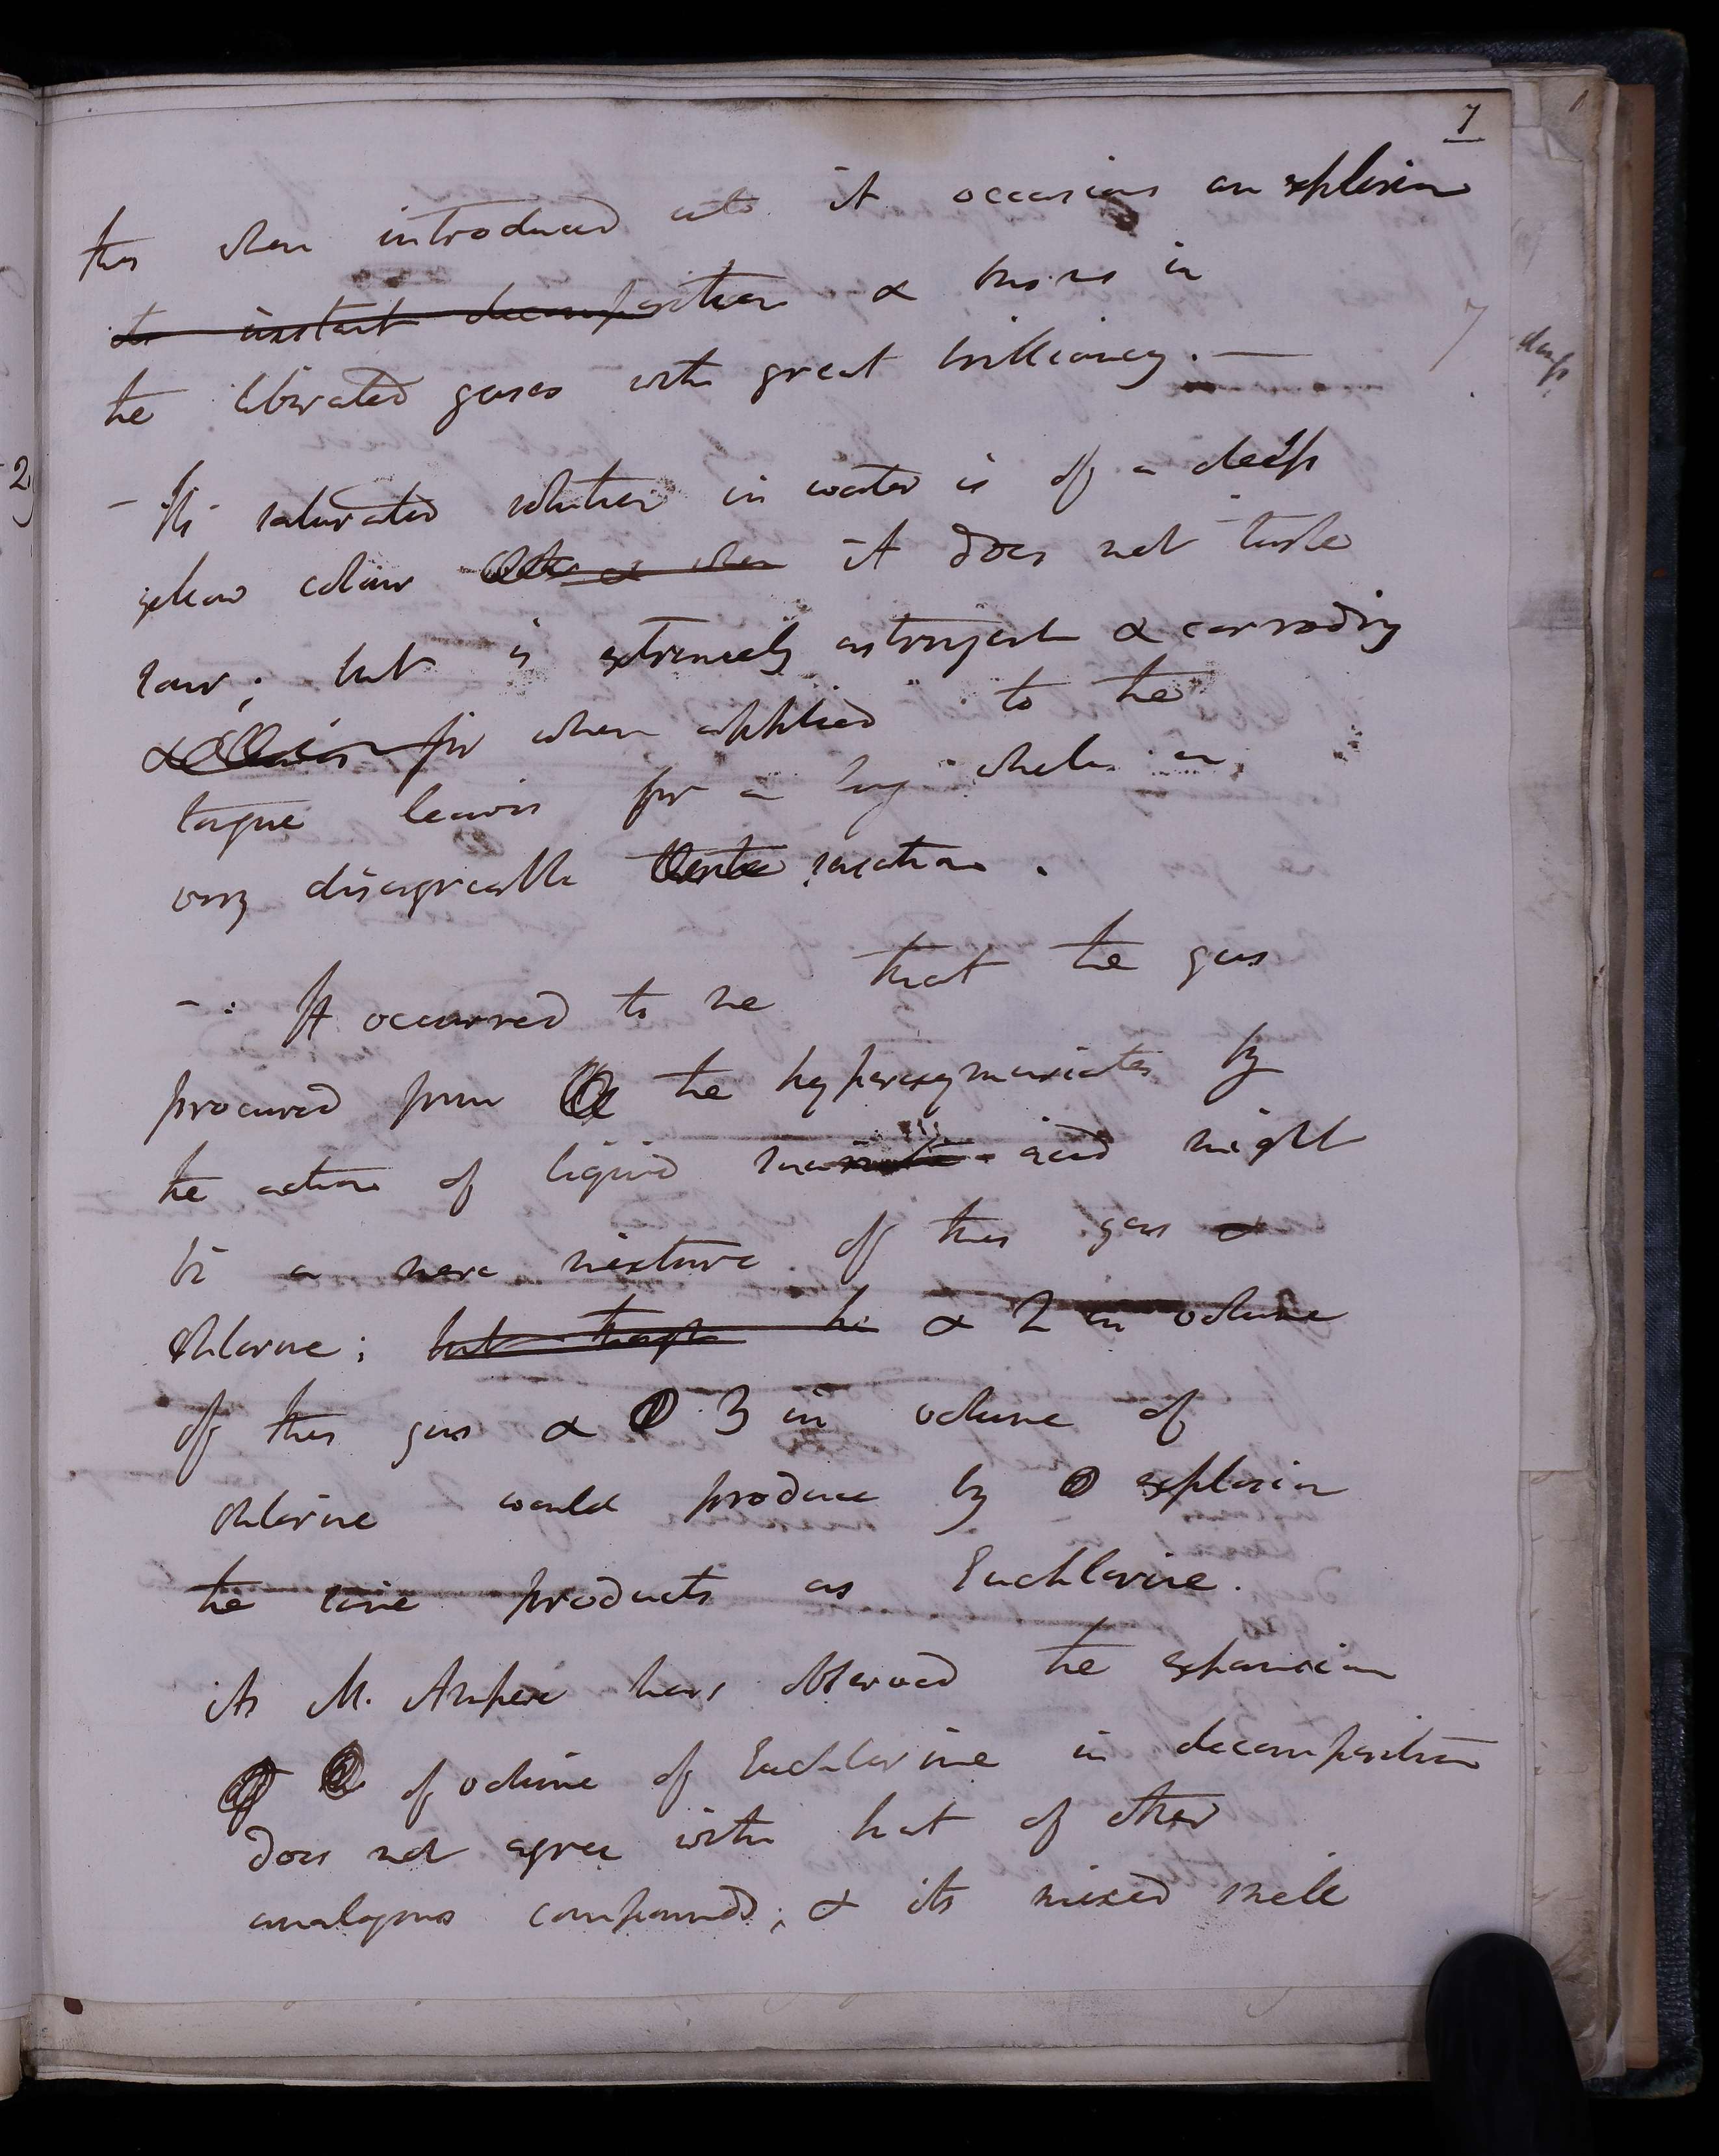 7
this when introduced into it occasions an explosion
its instant decomposition & burns in
the liberated gases with great brilliancy. —
7
deep
- Its saturated solution in water is of a deep
yellow colour & when it does not taste
sour; but is extremely astringent & corroding
& for when applied to the
tongue leaves for a long while a
very disagreeable sensation.
-: It occurred to me that the gas
procured from the hyperoxymuriates by
the action of liquid muriatic acid might
be a mere mixture of this gas &
Chlorine; but though the & 2 in volume
of this gas & 3 in volume of
chlorine would produce by explosion
the same products as Euchlorine.
As M. Ampere has observed the expansion
of volume of Euchlorine in decomposition
does not agree with that of other
analogous compounds; & its mixed smell
2